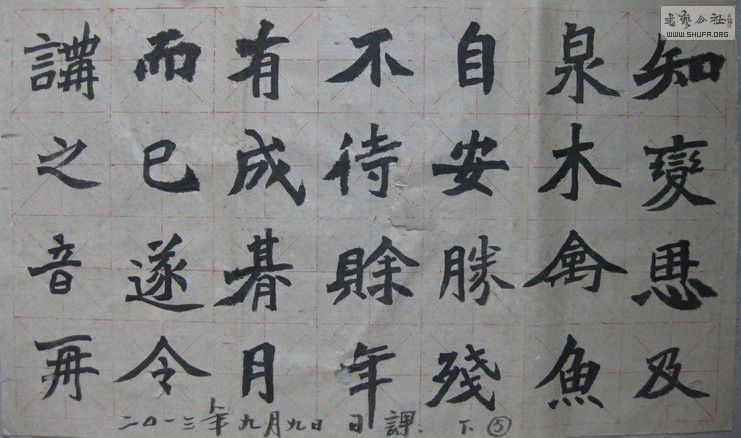 知變恩及
泉木禽魚
自安勝殘
不待賒年
有成朞月
而已遂令
講之音再
二〇一三年九月九日 日課. 下. ⑤
書藝公社
WWW.SHUFA.ORG